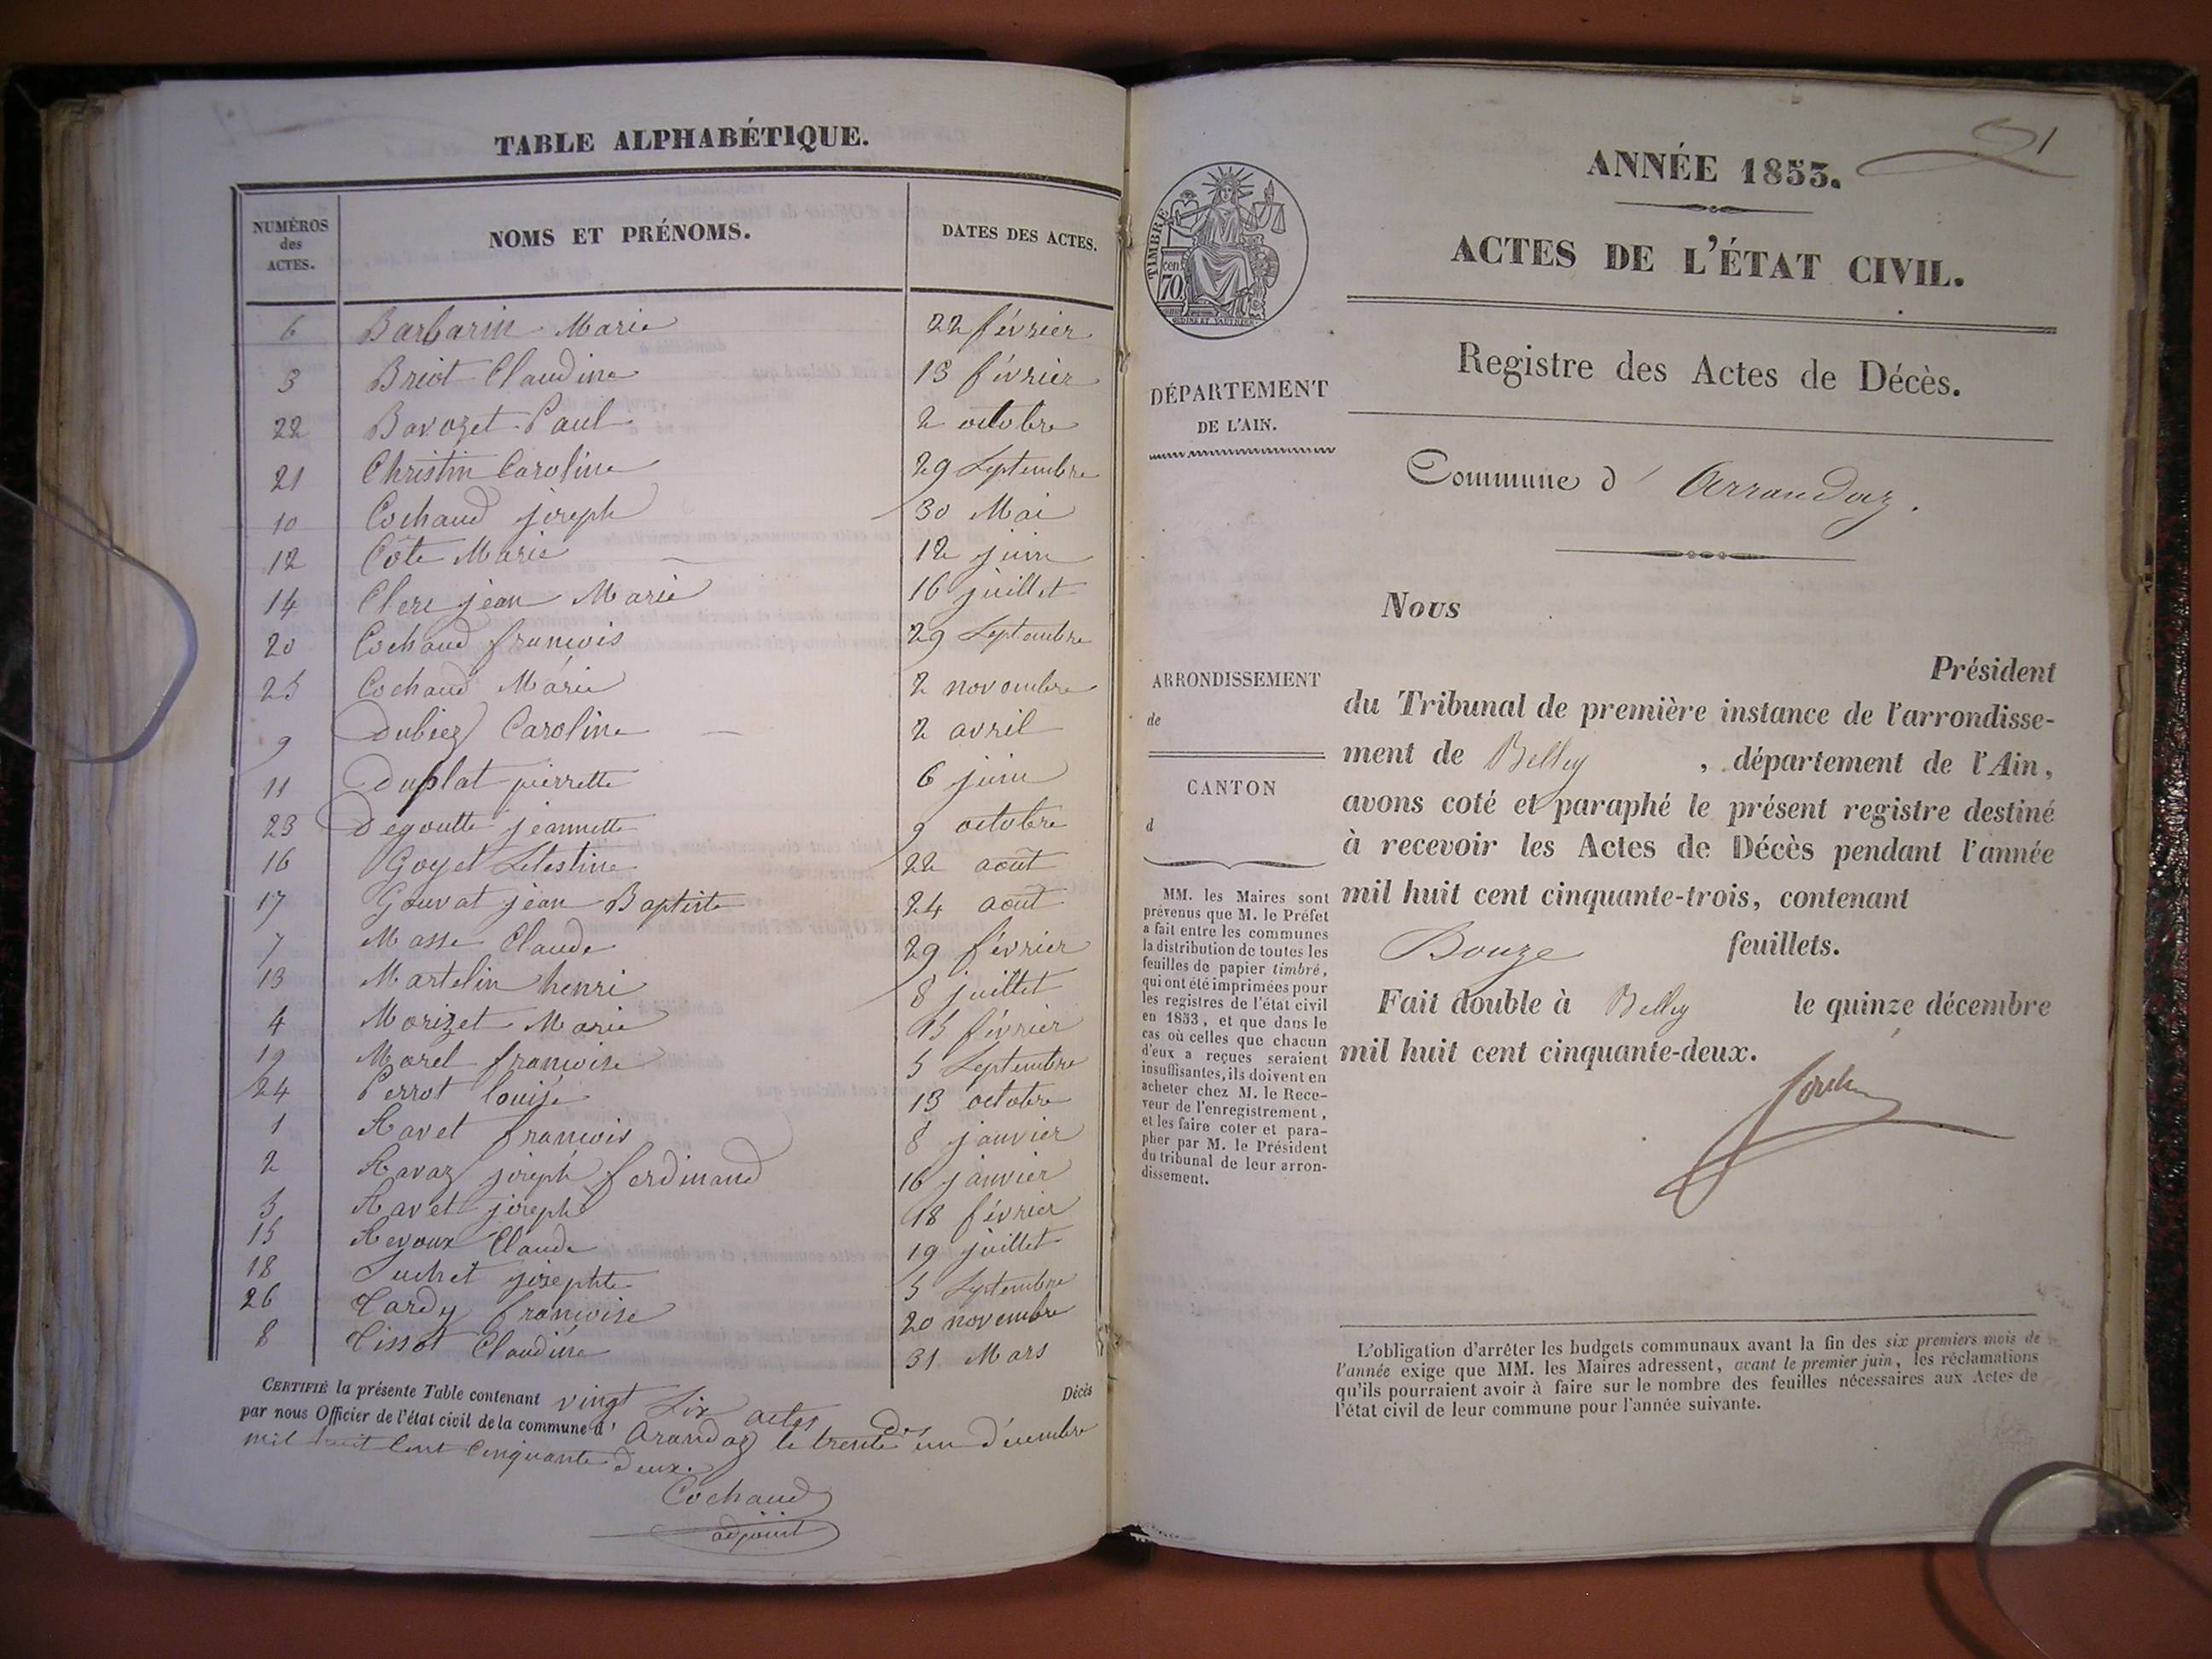 TABLE ALPHABÉTIQUE.
NUMÉROS des ACTES. NOMS ET PRÉNOMS. DATES DES ACTES.
6 Barbarin Marie 22 février
3 Briot Claudine 13 février
22 Bavozet Paul 2 octobre
21 Christin Caroline 29 Septembre
10 Cochaud joseph 30 Mai
12 Côte Marie 12 juin
14 Clerc jean Marie 16 juillet
20 Cochaud francois 29 Septembre
25 Cochaud Marie 2 novembre
9 Dubiez Caroline 2 avril
11 Duplat pierrette 6 juin
23 Degoutte jeannette 9 octobre
16 Goyet Celestine 22 août
17 Gouvat jean Baptiste 24 août
7 Masse Claude 29 février
13 Martelin henri 8 juillet
4 Morizet Marie 15 février
19 Morel francoise 5 Septembre
24 Perrot louise 13 octobre
1 Ravet francois 8 janvier
2 Ravaz joseph ferdinand 16 janvier
5 Ravet joseph 18 février
15 Revoux Claude 19 juillet
18 Suchet josephte 5 Septembre
26 Tardy francoise 20 novembre
8 Tissot Claudine 31 Mars
CERTIFIÉ la présente Table contenant vingt Six actes de Décès
par nous Officier de l'état civil de la commune d' Arandaz le trente un décembre
mil huit Cent Cinquante deux.
Cochaud
adjoint
51
ANNÉE 1853.
ACTES DE L'ÉTAT CIVIL.
TIMBRE
70 cen
Registre des Actes de Décès.
DÉPARTEMENT
DE L'AIN.
Commune d' Arrandaz.
Nous
Président
ARRONDISSEMENT
de
CANTON
d
du Tribunal de première instance de l'arrondisse-
ment de Belley , département de l'Ain,
avons coté et paraphé le présent registre destiné
à recevoir les Actes de Décès pendant l'année
mil huit cent cinquante-trois, contenant
Douze feuillets.
Fait double à Belley le quinze décembre
mil huit cent cinquante-deux.
MM. les Maires sont
prévenus que M. le Préfet
a fait entre les communes
la distribution de toutes les
feuilles de papier timbré,
qui ont été imprimées pour
les registres de l'état civil
en 1853, et que dans le
cas où celles que chacun
d'eux a reçues seraient
insuffisantes, ils doivent en
acheter chez M. le Rece-
veur de l'enregistrement,
et les faire coter et para-
pher par M. le Président
du tribunal de leur arron-
dissement.
L'obligation d'arrêter les budgets communaux avant la fin des six premiers mois de
l'année exige que MM. les Maires adressent, avant le premier juin, les réclamations
qu'ils pourraient avoir à faire sur le nombre des feuilles nécessaires aux Actes de
l'état civil de leur commune pour l'année suivante.